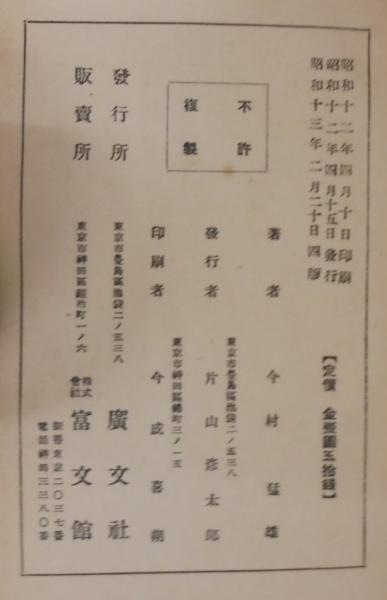 昭和十二年四月十日印刷
昭和十二年四月十五日發行
昭和十三年二月二十日四版
【定價 金壹圓五拾錢】
不許
複製
著者 今村猛雄
東京市豊島區池袋二ノ五三八
發行者 片山彦太郎
東京市神田區錦町三ノ一五
印刷者 今成喜朔
東京市豊島區池袋二ノ五三八
發行所 廣文社
東京市神田區鍛冶町一ノ六
販賣所 株式會社 富文館
振替東京二〇三七番
電話神田三三八〇番